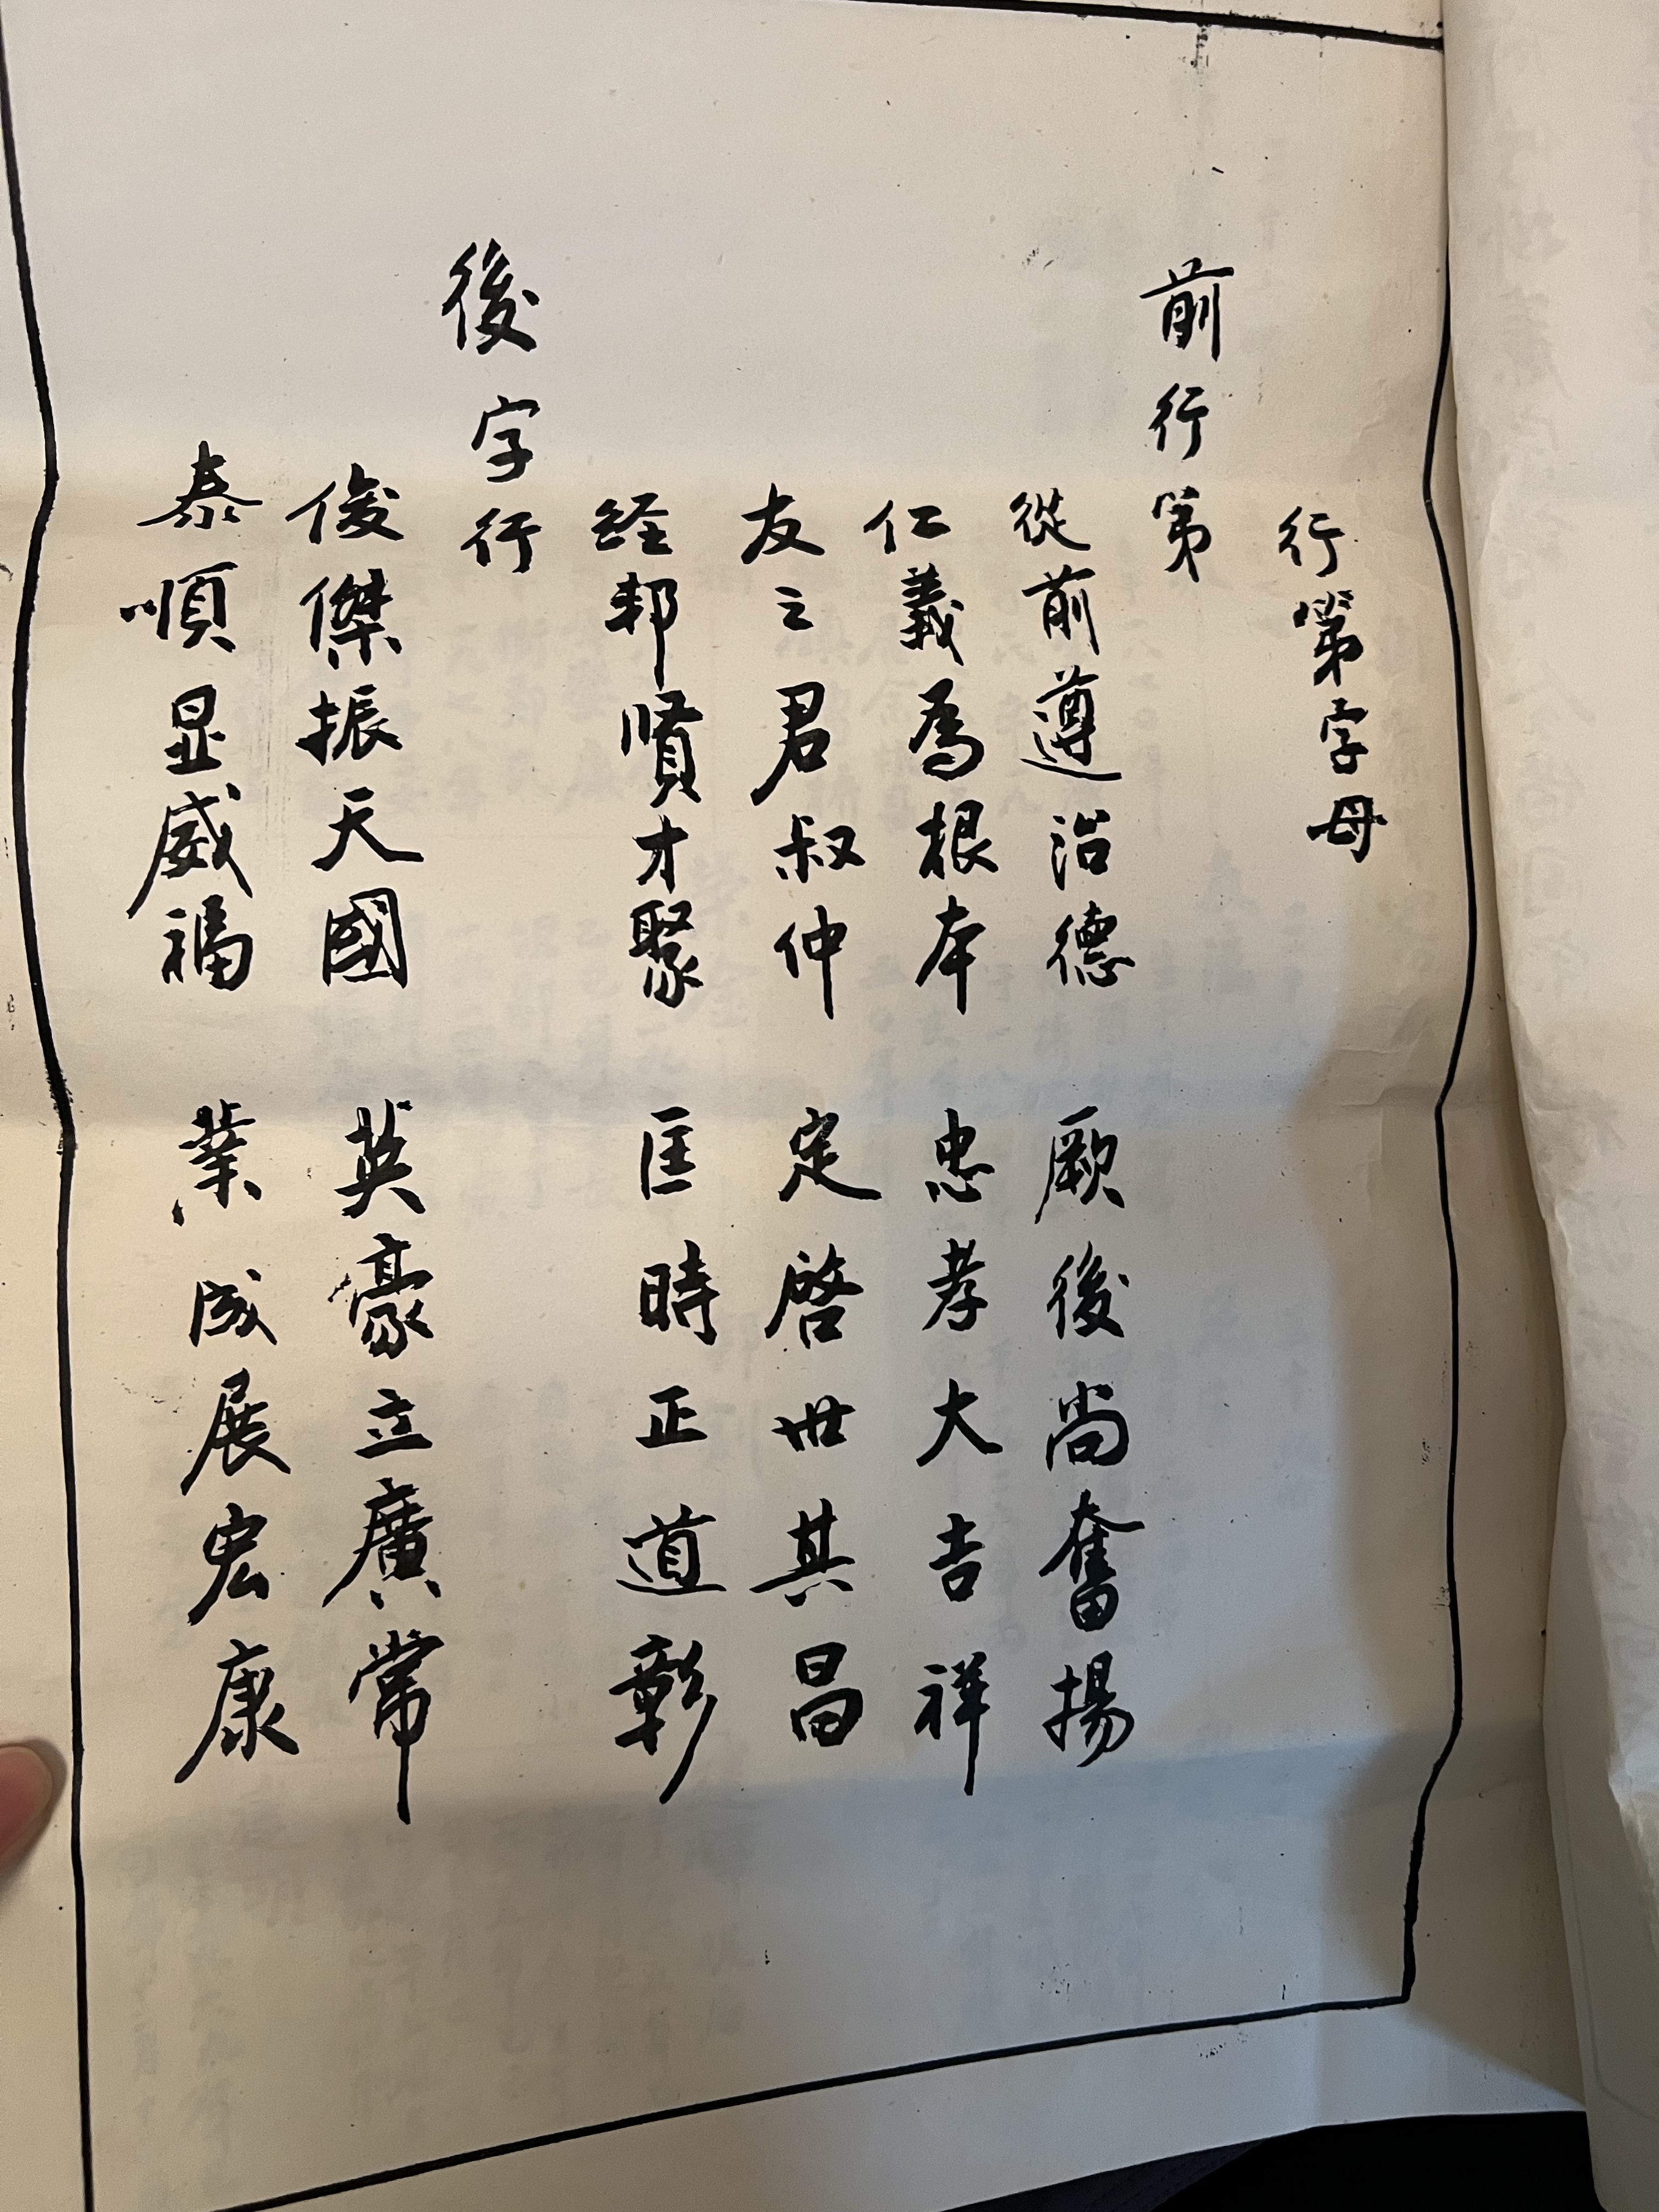 行第字母
前行第
從前遵治德 厥後尚奮揚
仁義為根本 忠孝大吉祥
友之君叔仲 定啓世其昌
经邦賢才聚 匡時正道彰
後字行
俊傑振天國 英豪立廣常
泰順显威福 業成展宏康